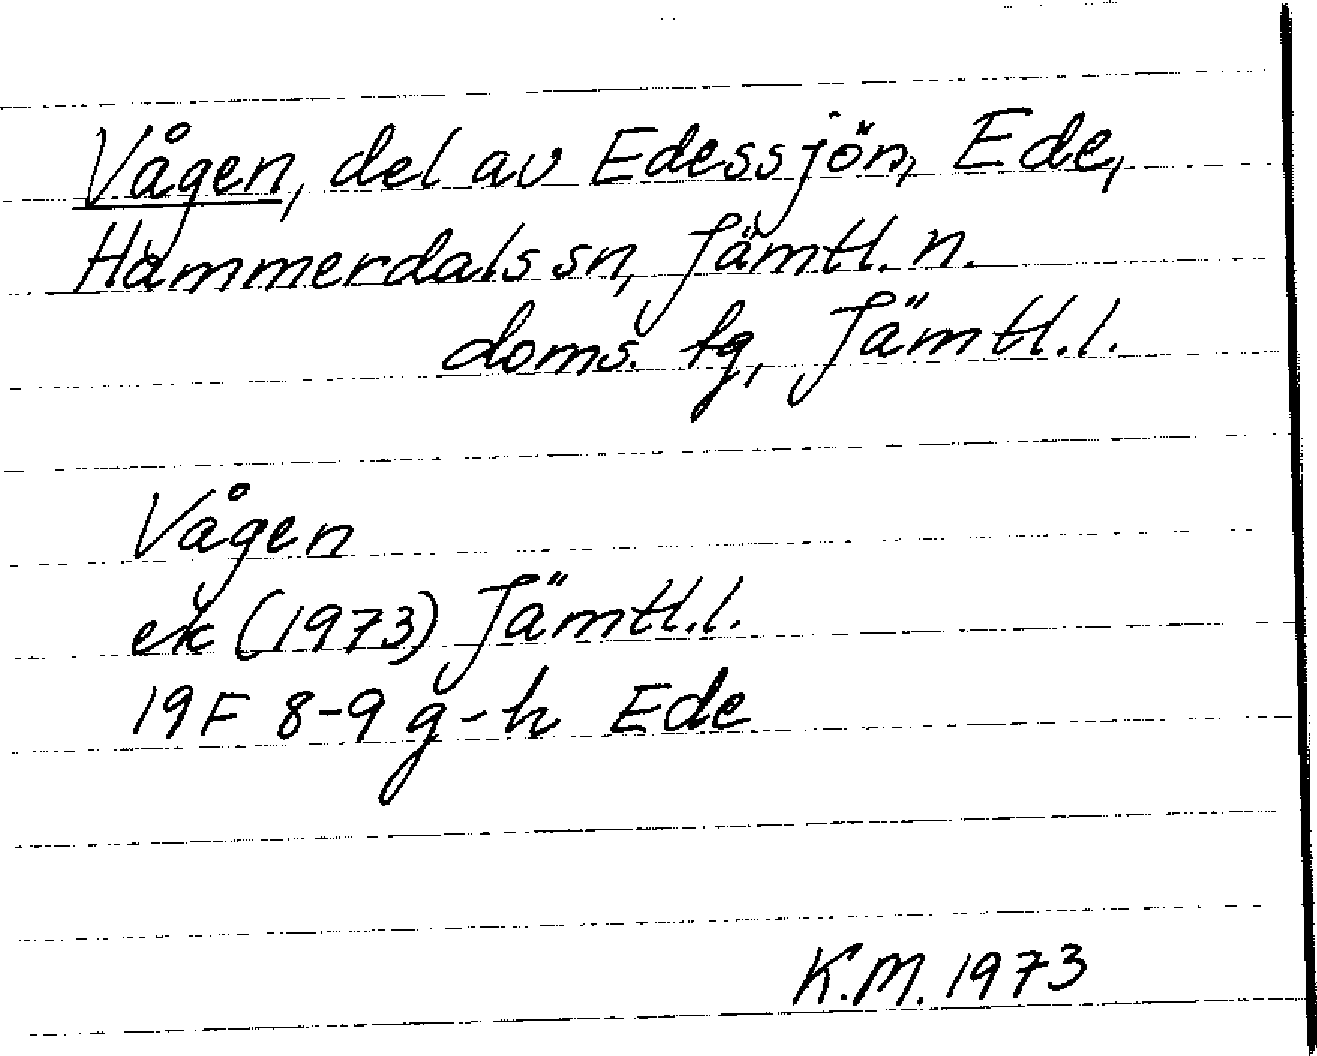 Vågen, del av Edessjön, Ede,
Hammerdals sn, Jämtl. n.
doms. tg, Jämtl. l.
Vågen
ek (1973) Jämtl. l.
19F 8-9 g-h Ede
K.M. 1973